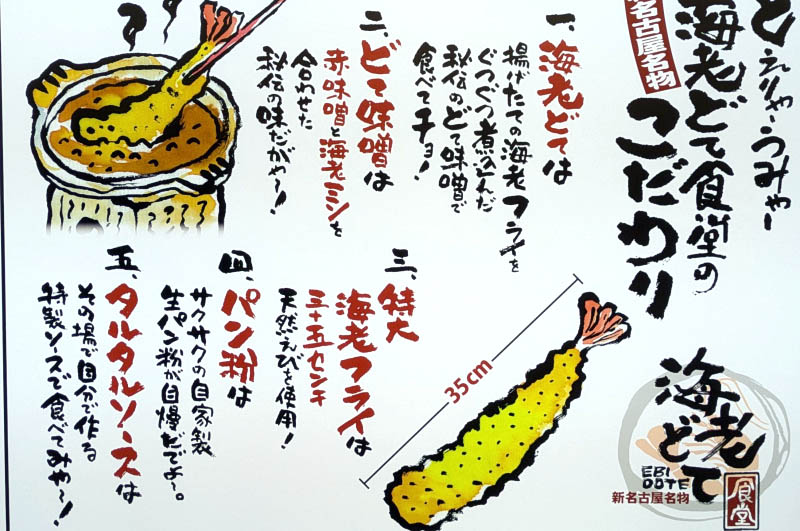 どえりゃーうみゃー
名古屋名物
海老どて食堂の
こだわり
一、海老どては
揚げたての海老フライを
ぐつぐつ煮込んだ
秘伝のどて味噌で
食べてチョ!
二、どて味噌は
赤味噌と海老ミソを
合わせた
秘伝の味だがや〜!
三、特大
海老フライは
三十五センチ
天然えびを使用!
四、パン粉は
サクサクの自家製
生パン粉が自慢だでよ〜。
五、タルタルソースは
その場で自分で作る
特製ソースで食べてみや〜!
35cm
海老
どて
EBI
DOTE
新名古屋名物
食堂